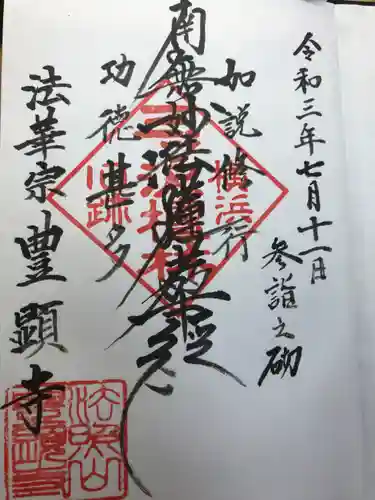 令和三年七月十一日
参詣之砌
如説修行
南無妙法蓮華経
功徳甚多
法華宗豊顕寺
横浜
旧跡
法照山